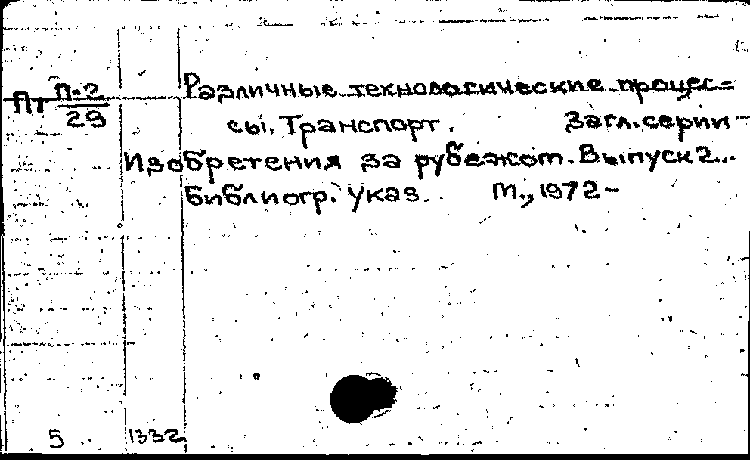 Пт П-2/29 Различные технологические процес-
сы. Транспорт. Загл. серии -
Изобретения за рубежом. Выпуск 2...
Библиогр. указ. М., 1972-
5 1332